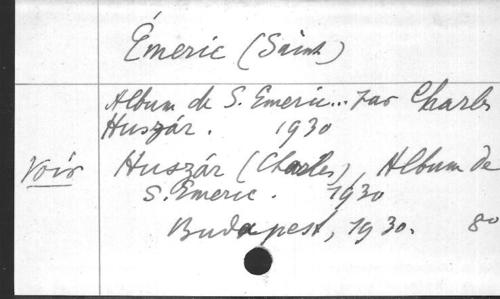 Émeric (Saint)
Album de S. Emeric... par Charles
Huszár. 1930
Voir Huszár (Charles), Album de
S. Emeric. 1930
Budapest, 1930. 8o